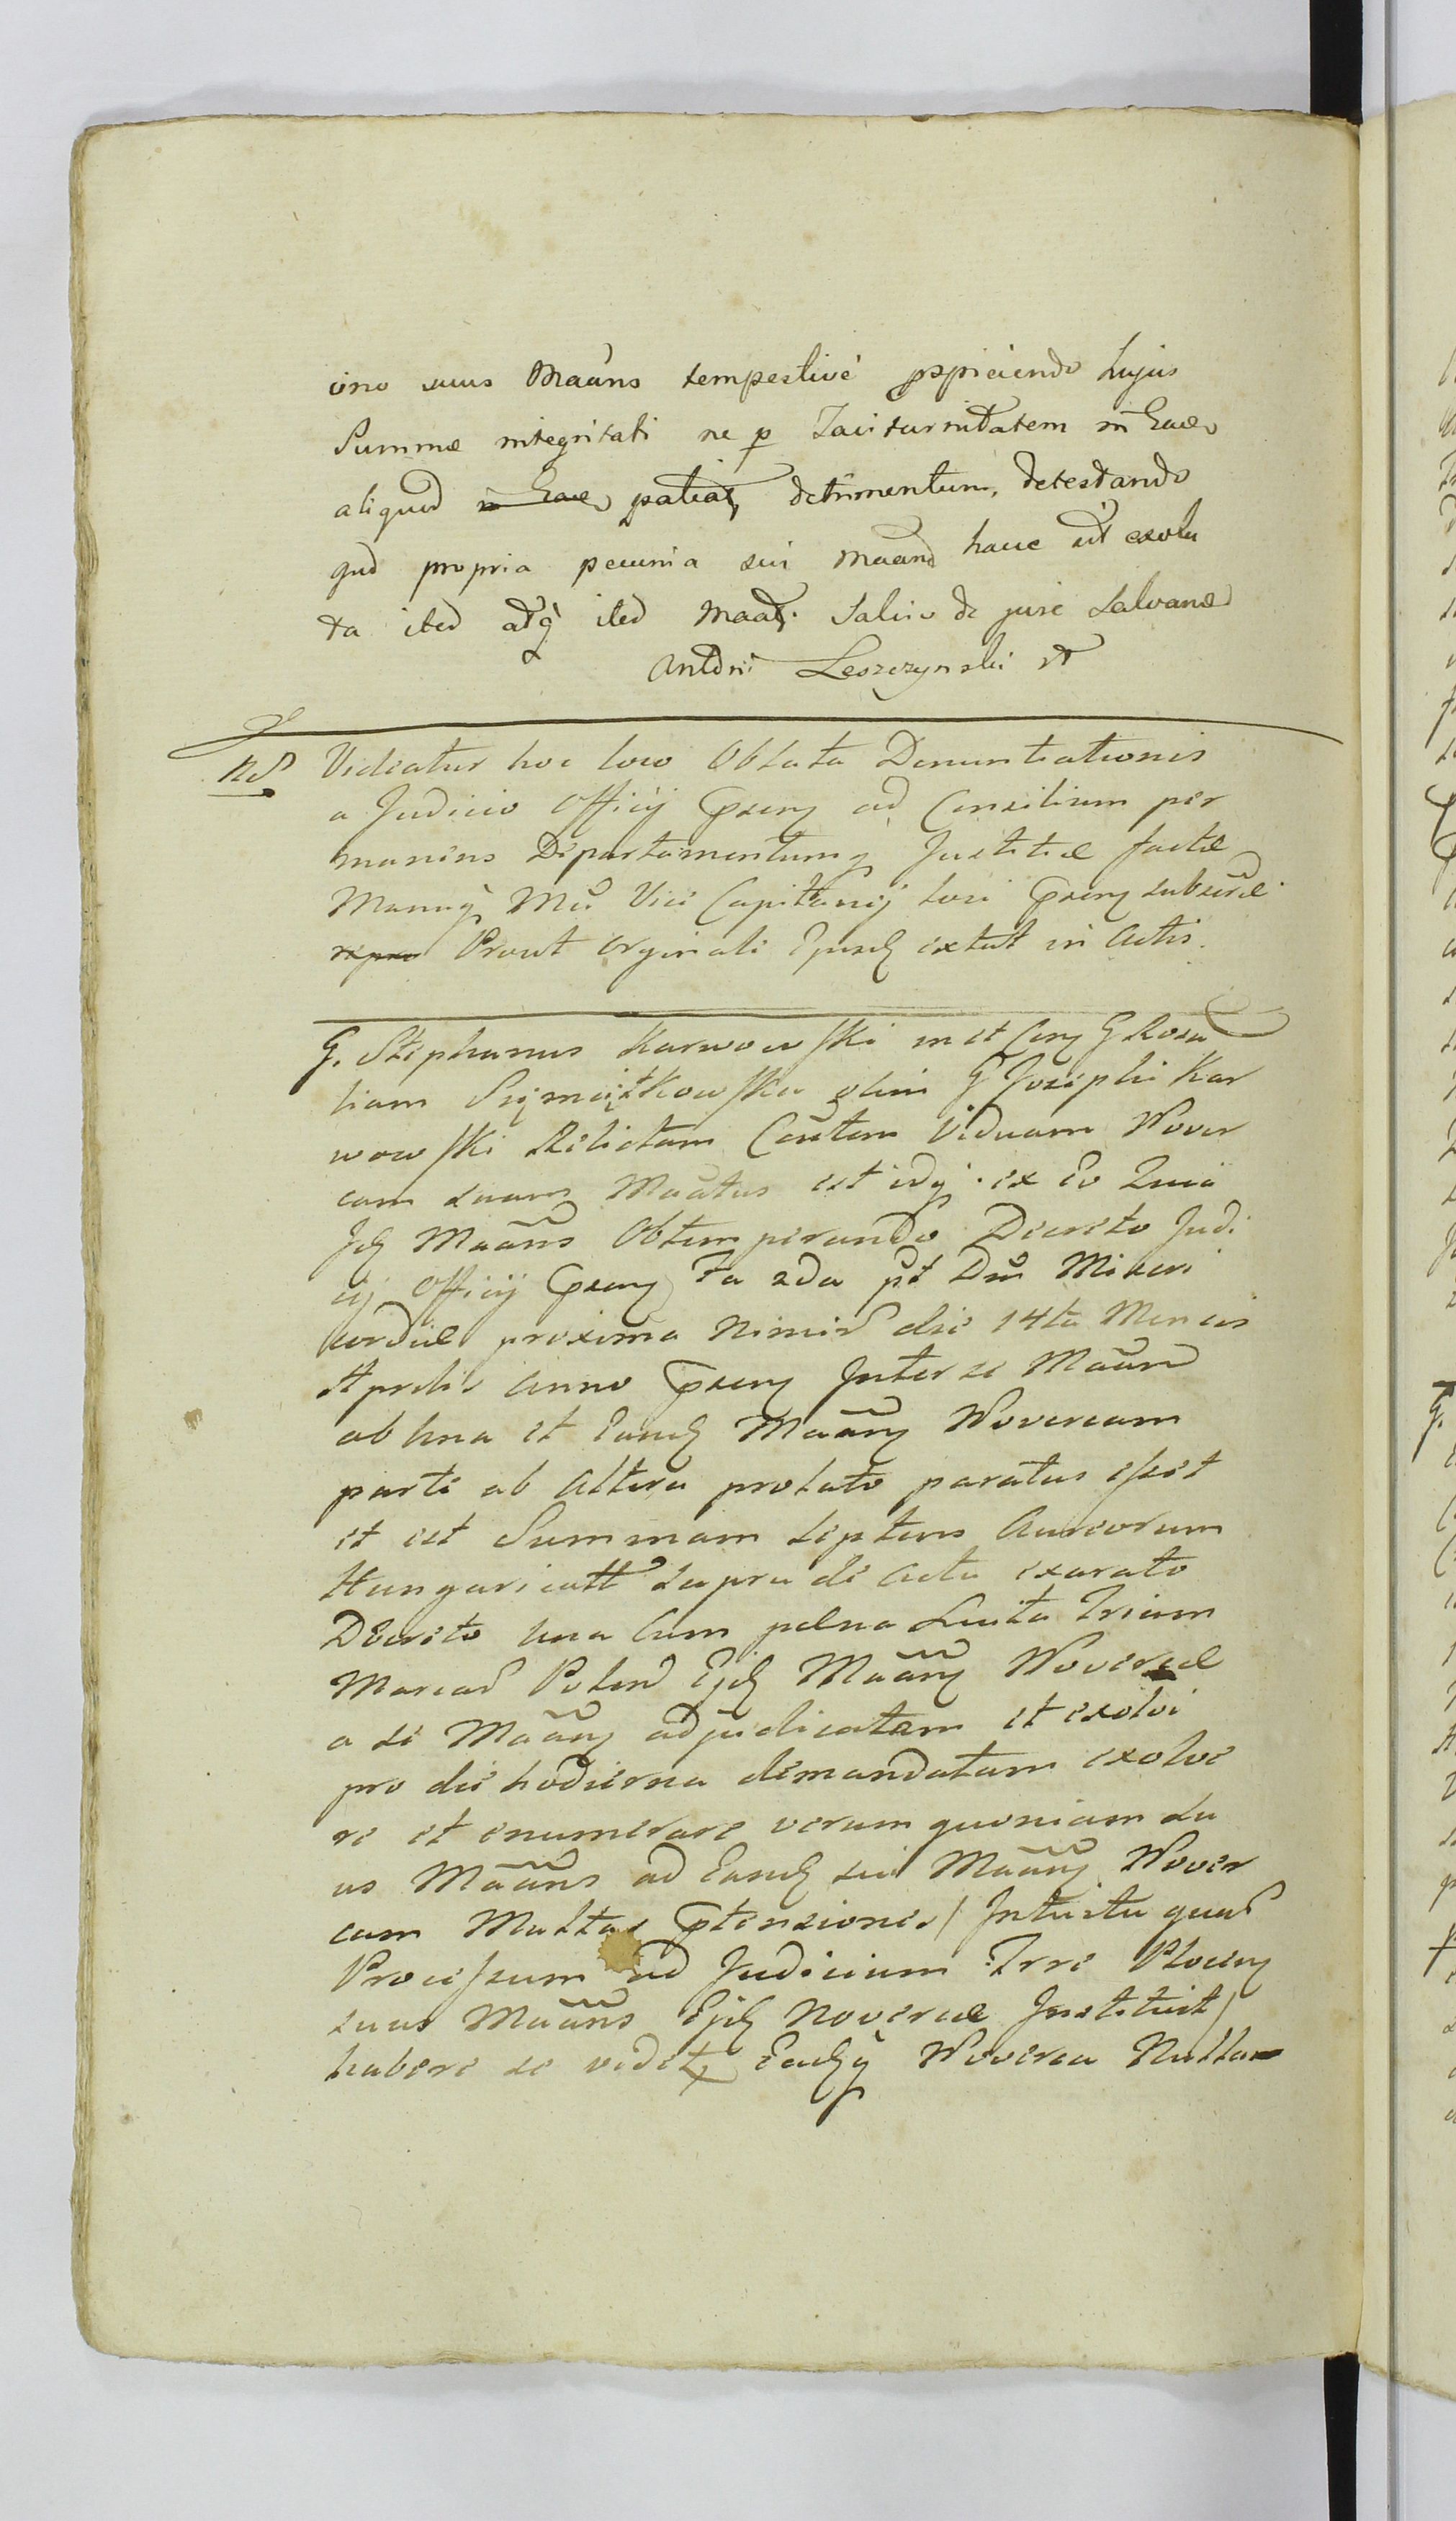 óno suus Maãns tempestivè pspiciendo hujus
Summæ integritati ne p Taciturnitatem in Eade
aliquod in Eade patiat detrimentum, detestando
qud propria pecunia sui Maand haec est exolu
ta ited atq ited Maat. Salvo de jure Salvando
Antoni Leszczynski
Nd Videatur hoc loco Oblata Denuntiationis
a Judicio Officÿ Gpsens ad Consilium per
manens Departamentumq Justitiæ factæ
Manuq Mci Vice Capitanÿ loci Gpsens subscrê
repro Prout orginali Ejusd extat in Actis.
G. Stephanus Karwowski in et Cong G Rosa
liam Szymaitkowska olim G Josephi Kar
wowski Relictam Consortem Viduam Nover
cam suam Maãtus est idq. ex Eo Quia
Id Maãns Obtemperando Decreto Judi
cÿ Officÿ Gpsens Fa 2da pt Dni Miseri
cordiæ proxima Nimir die 14ta Mensis
Aprilis Anno Gpsens Inter se Maãnd
ab Una et Eand Maãns Novercam
parte ab Altera prolato paratus esset
et est Summam septem Aureorum
Hungaricatt supra de actu exarato
Decreto una Cum pœna Luita Trium
Marcar Polon Ejd Maãns Novercæ
a se Maãns adjudicatam et exolvi
pro die hodierna demandatam exolve
re et enumerare verum quoniam su
us Maãns ad Eand sui Maãns Nover
cam Multas Gptensiones / Intuitu quar
Processum ad Judicium Trre Plocens
suus Maãns Ejd Novercæ Instituit /
habere se videt, Eadq Noverca Nullam